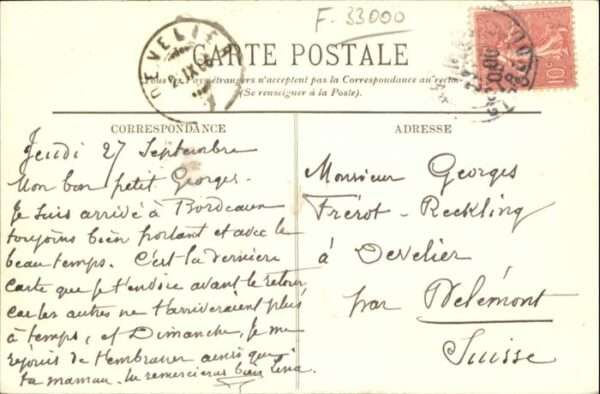 F. 33000
DEVELIER
CARTE POSTALE
Tous les Pays étrangers n'acceptent pas la Correspondance au recto
(Se renseigner à la Poste).
CORRESPONDANCE
Jeudi 27 Septembre
Mon bon petit Georges.
Je suis arrivé à Bordeaux
toujours bien portant et avec le
beau temps. C'est la dernière
carte que je t'envoie avant le retour,
car les autres ne t'arriveraient plus
à temps, et Dimanche, je me
réjouis de t'embrasser ainsi que
ta maman. tu remercieras bien Léna.
ADRESSE
Monsieur Georges
Frérot-Reckling
à Develier
par Delémont
Suisse
10